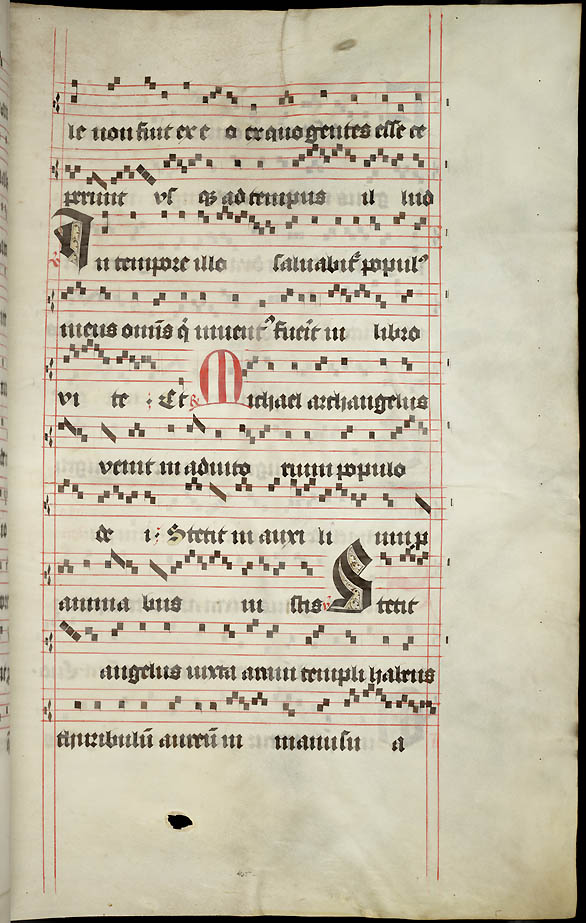 le non fiut ex e o ex quo gentes esse ce
perunt vsq; ad tempus il lud
In tempore illo saluabit᷑ populꝰ
meus omīs q̇ inuent᷑ fuerit in libro
vi te : Et Michael archangelus
venit in adiuto rium populo
de i : Stetit in auxi li um p
anima bus iu stis Stetit
angelus iuxta aram templi habens
thuribulū aureū in manu su a